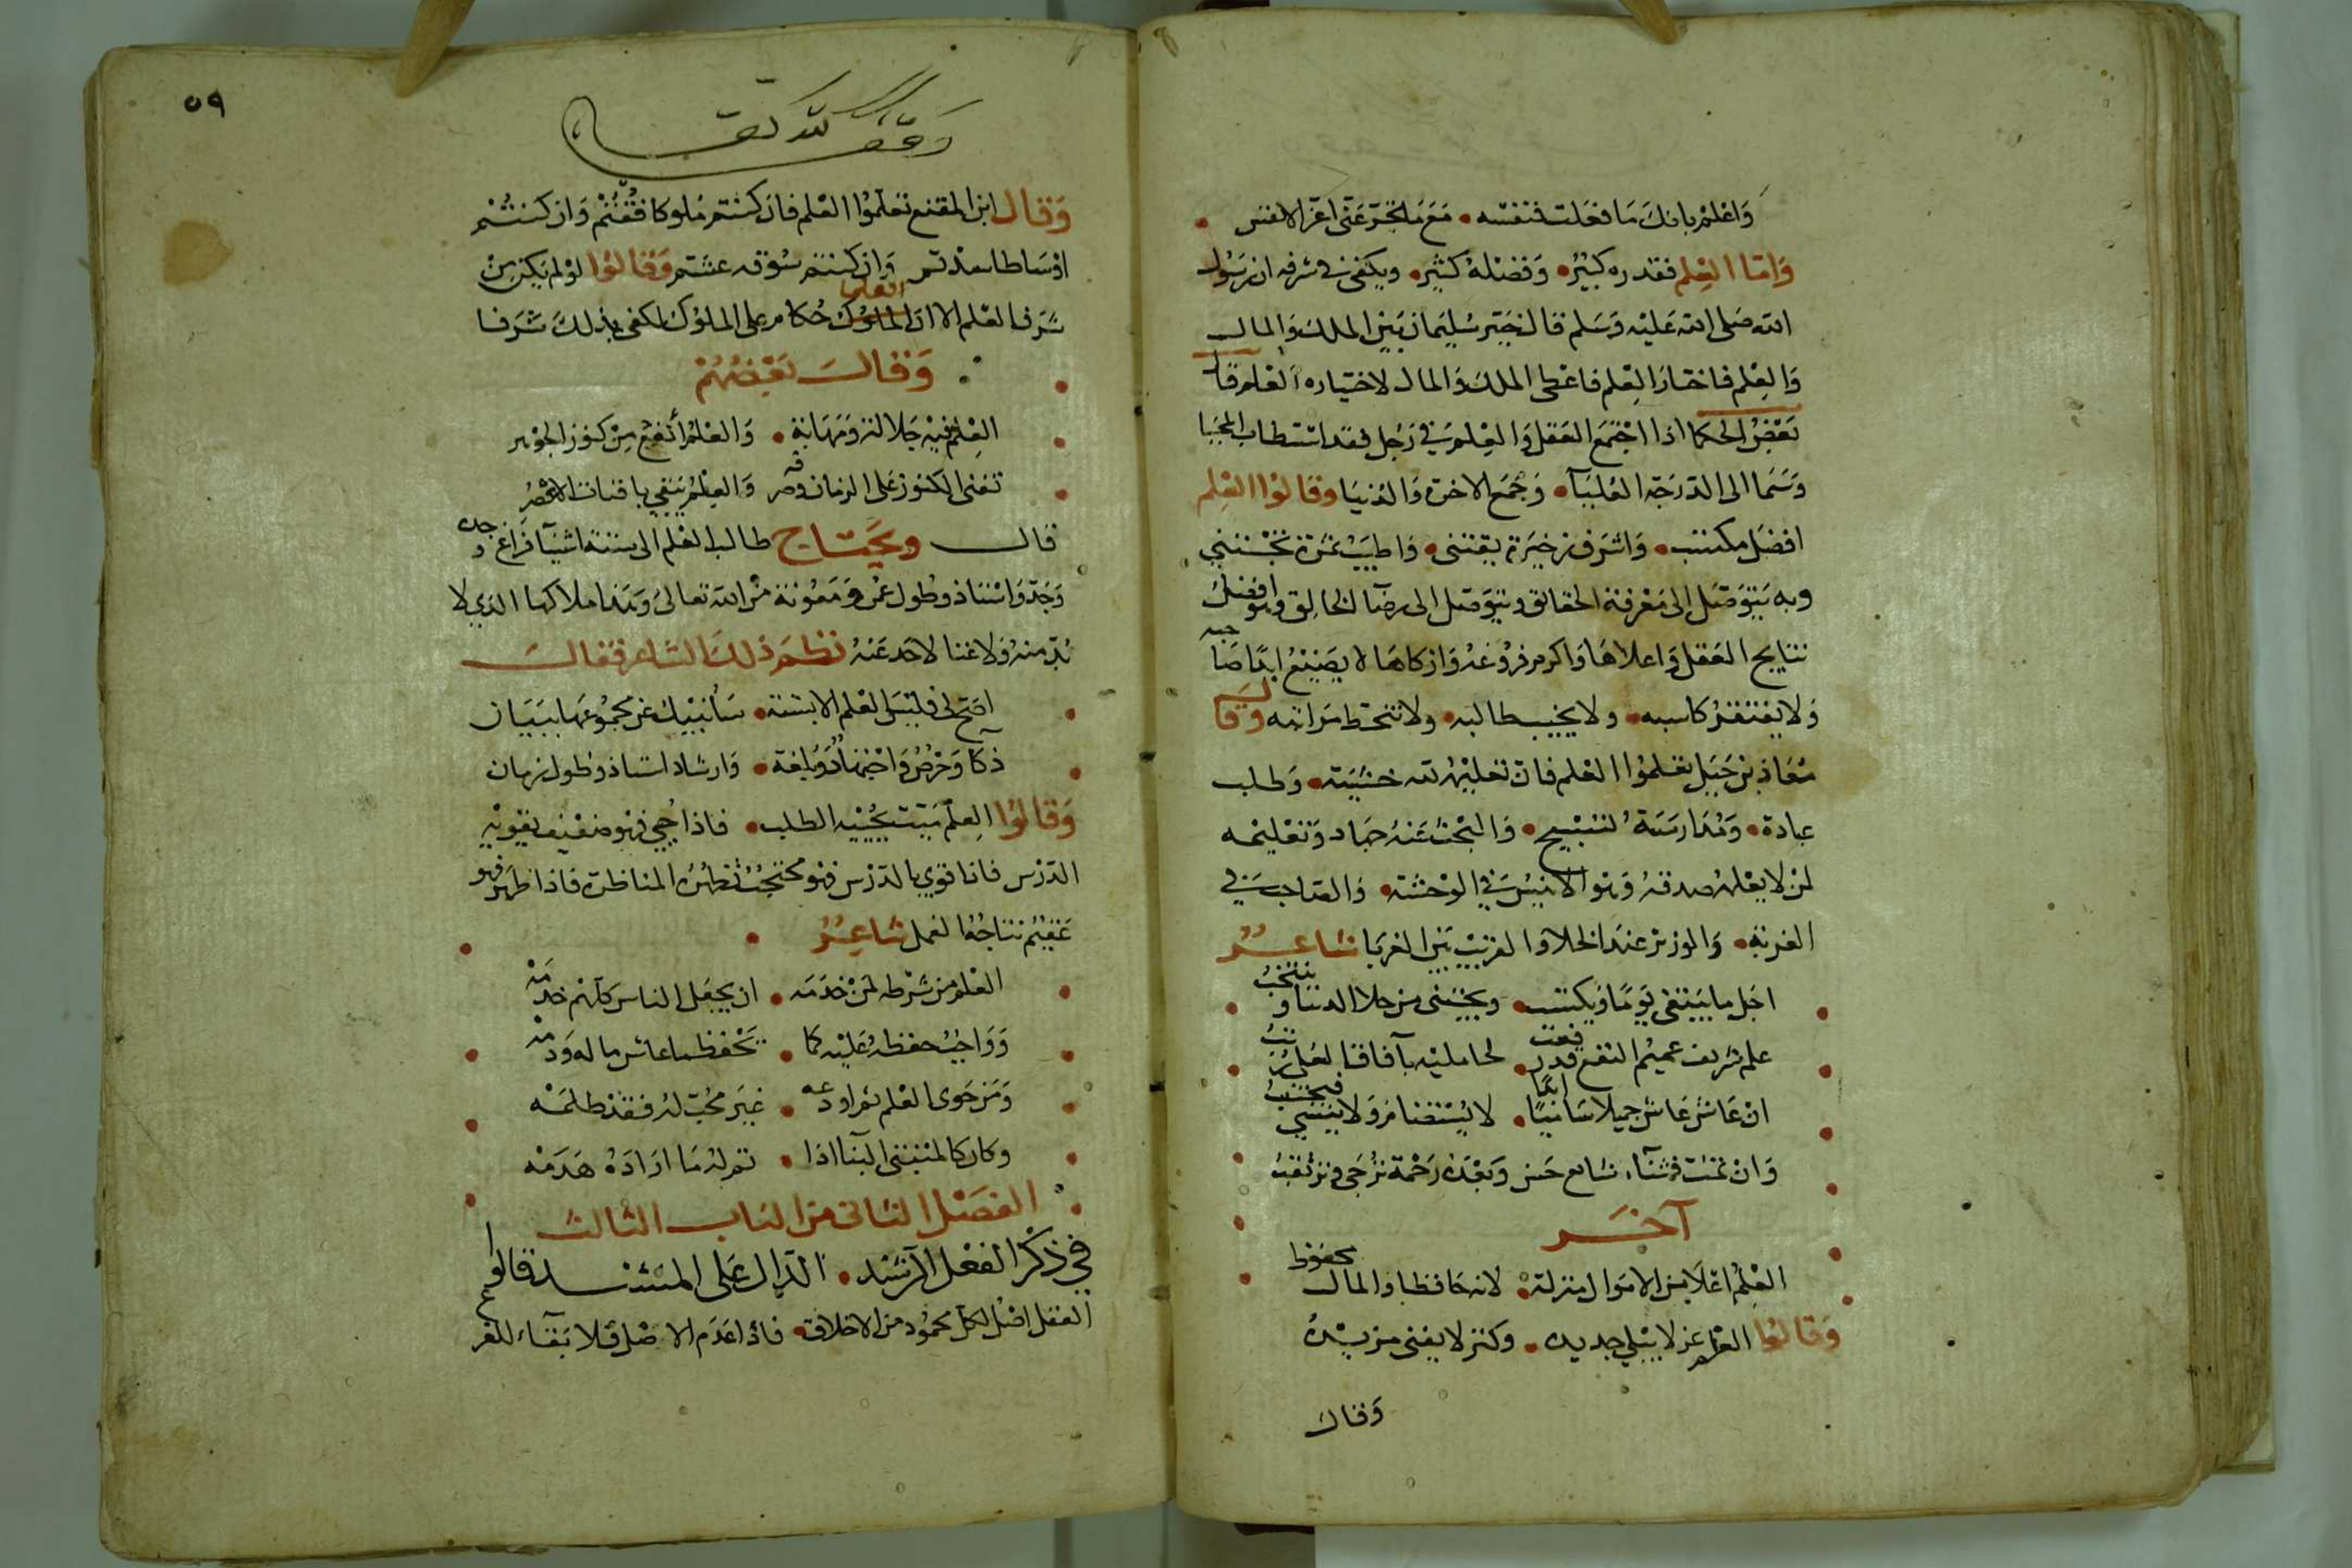 واعلم بانك ما فعلت فنفسه • مع ما تخبر عني اعز الانفس
واما العلم فقدره كبير • وفضله كثير • ويكفي في شرفه ان رسول
الله صلى الله عليه وسلم قال خير سليمان بين الملك والمال
والعلم فاختار العلم فاعطى الملك والمال لاختياره العلم وقال
بعض الحكما اذا اجتمع العقل والعلم في رجل فقد استطاب المحيا
وسما الى الدرجة العليا • وجمع الاخرة والدنيا وقالوا العلم
افضل مكتسب • واشرف ذخيرة تقتنى • واطيب ثمرة تجتنى
وبه يتوصل الى معرفة الحقايق ويتوصل الى رضا الخالق وهو افضل
نتايج العقل واعلاها واكرم فروعه وازكاها لا يضيع ابدا صاحبه
ولا يفتقر كاسبه • ولا يخيب طالبه • ولا تنحط مراتبه وقال
معاذ بن جبل تعلموا العلم فان تعليمه لله خشية • وطلبه
عبادة • ومدارسته تسبيح • والبحث عنه جهاد وتعليمه
لمن لا يعلمه صدقة وهو الانيس في الوحشة • والصاحب في
الغربة • والوزير عند الخلا والقريب بين الغربا شاعر
اجل ما يبتغى يوما ويكتسب • ويجتنى من حلا الدنيا وينتخب
علم شريف عميم النفع قد رفعت • لحامليه بآفاق العلى رتب
ان عاش عاش جميلا ساميا ابدا • لا يستضام ولا ينسى فيجتنب
وان يمت فثناء شايع حسن وبعده رحمة ترجى وترتقب
آخر
العلم اعلا من الاموال منزلة • لانه حافظ والمال محفوظ
وقالوا العلم عز لا يبلى جديده • وكنز لا يفنى مزيده
وقال
٥٩
وقف لله تعالى
وقال ابن المقنع تعلموا العلم فان كنتم ملوكا فقتم وان كنتم
اوساطا سدتم وان كنتم سوقه عشتم وقالوا لو لم يكن من
شرف العلم الا ان العلما حكام على الملوك لكفى بذلك شرفا
وقال بعضهم
العلم فيه جلالة ومهابة • والعلم أنفع من كنوز الجوهر
تفنى الكنوز على الزمان وصرفه والعلم يبقى باقيات الاعصر
قال ويحتاج طالب العلم الى ستة اشيآ فراغ وجده
وجد واستاذ وطول عمر ومعونة من الله تعالى وهذا ملاكها الذي لا
بد منه ولا غنا لاحد عنه نظم ذلك الشاعر فقال
اصخ لي فليس العلم الا بستة • سأنبيك عن مجموعها ببيان
ذكآ وحرص واجتهاد وبلغة • وارشاد استاذ وطول زمان
وقالوا العلم ميت يحييه الطلب • فاذا حيي فهو ضعيف يقويه
الدرس فاذا قوي بالدرس فهو محتجب تظهره المناظرة فاذا ظهر فهو
عقيم نتاجه العمل شاعر
العلم من شرطه لمن خدمه • ان يجعل الناس كلهم خدمه
وواجب حفظه عليه كما • يحفظ ما عاش ماله ودمه
ومن حوى العلم ثم اودعه • غير محب له فقد ظلمه
وكان كالمبتني البنا اذا • تم له ما اراده هدمه
الفصل الثاني من الباب الثالث
في ذكر الفعل الرشد • الدال على المسترشد قالوا
العقل اصل لكل محمود من الاخلاق • فاذا عدم الاصل فلا بقآء للفرع